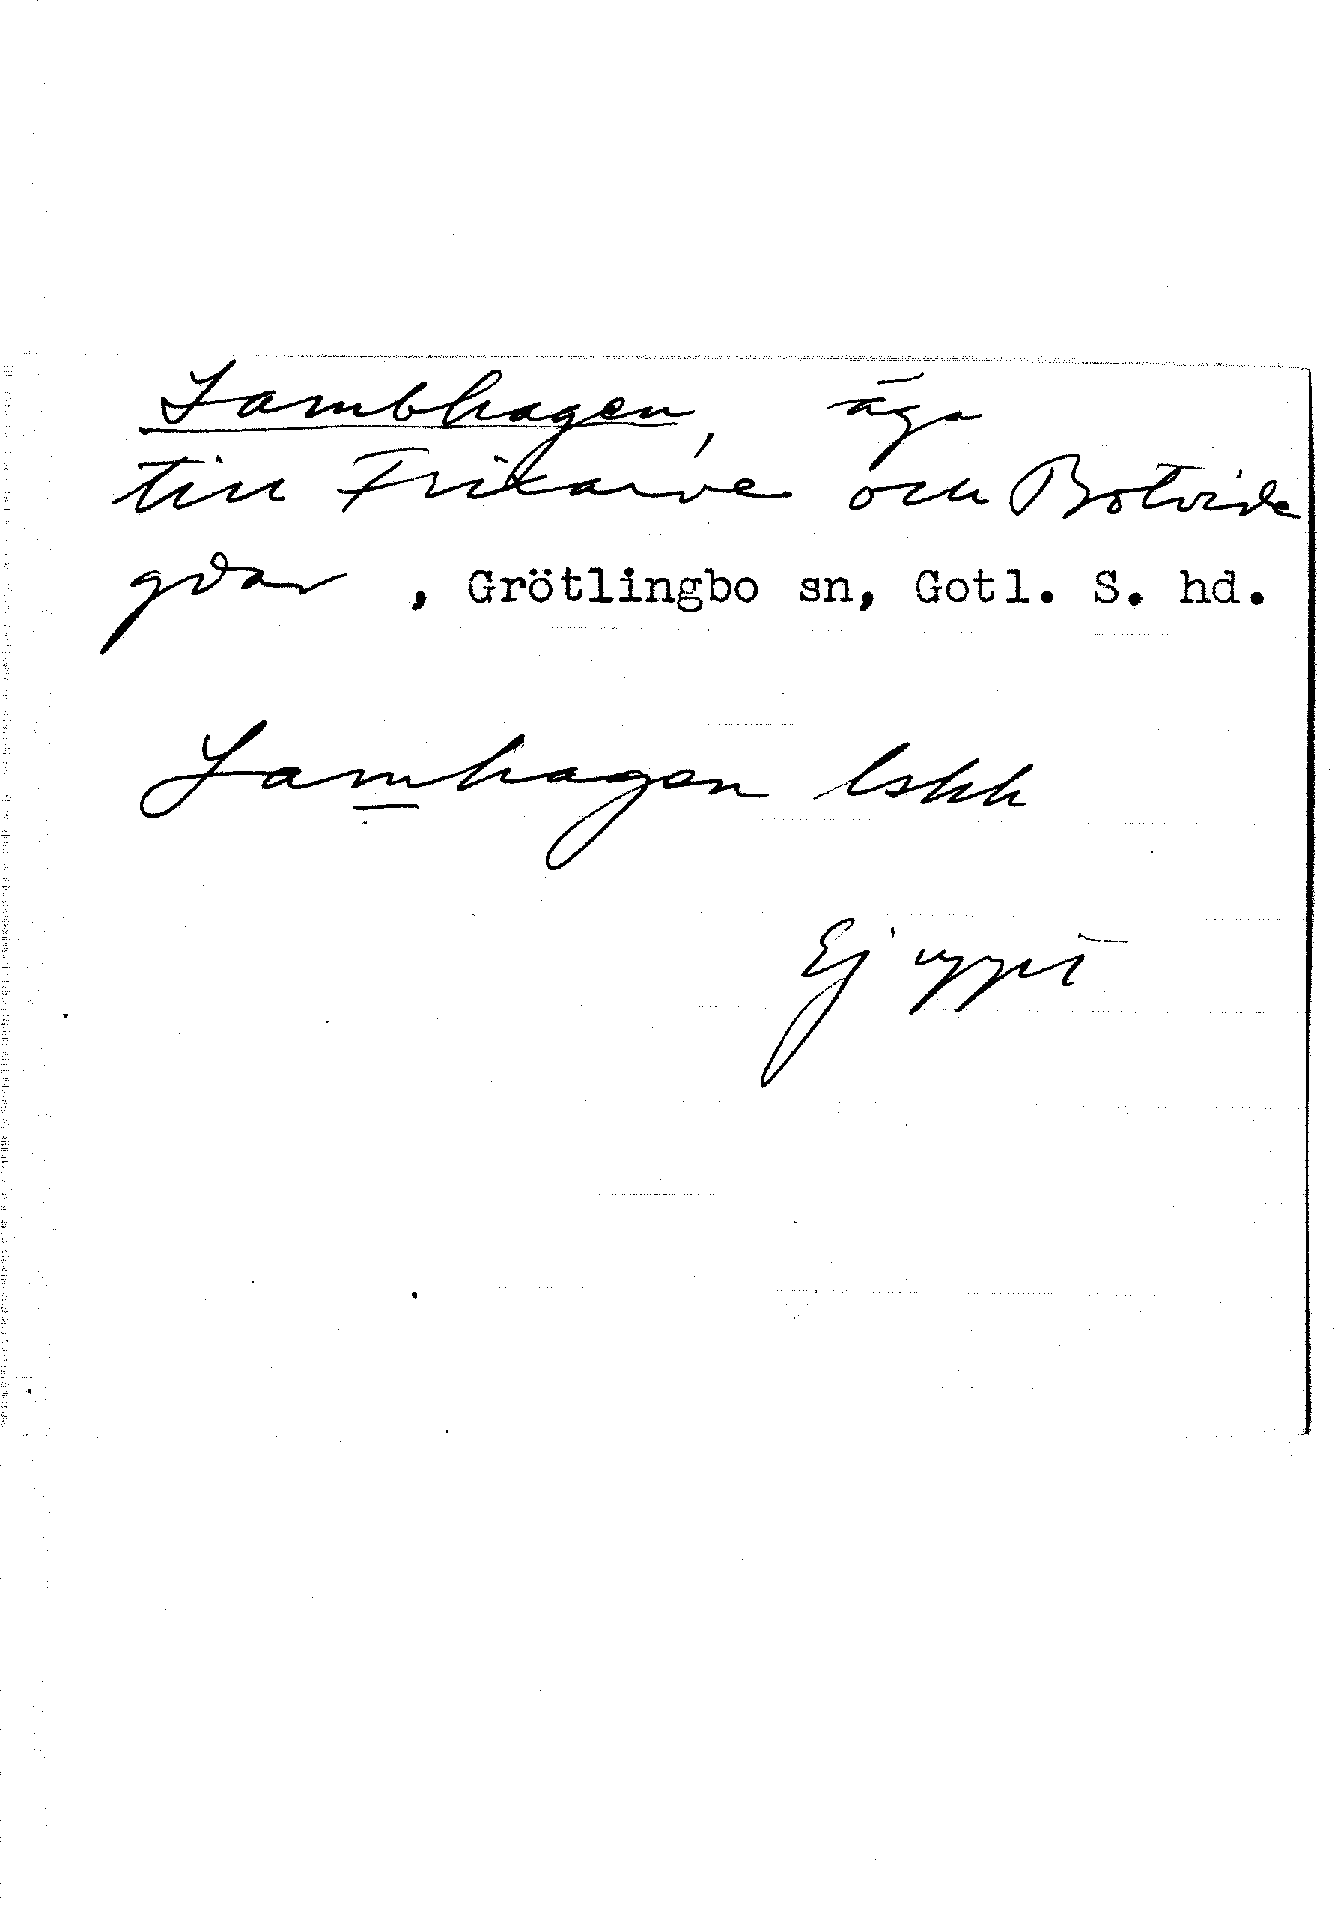 Lambhagen, äga
till Frixarve och Botvide
gdar, Grötlingbo sn, Gotl. S. hd.
Lamhagen lskh
Ej uppt